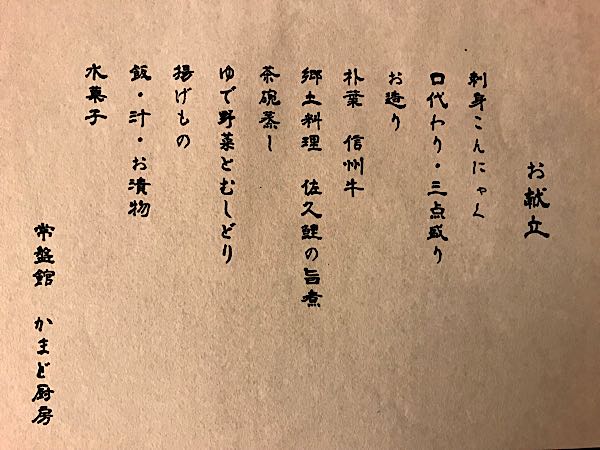 お献立
刺身こんにゃく
口代わり・三点盛り
お造り
朴葉 信州牛
郷土料理 佐久鯉の旨煮
茶碗蒸し
ゆで野菜とむしどり
揚げもの
飯・汁・お漬物
水菓子
常盤館 かまど厨房